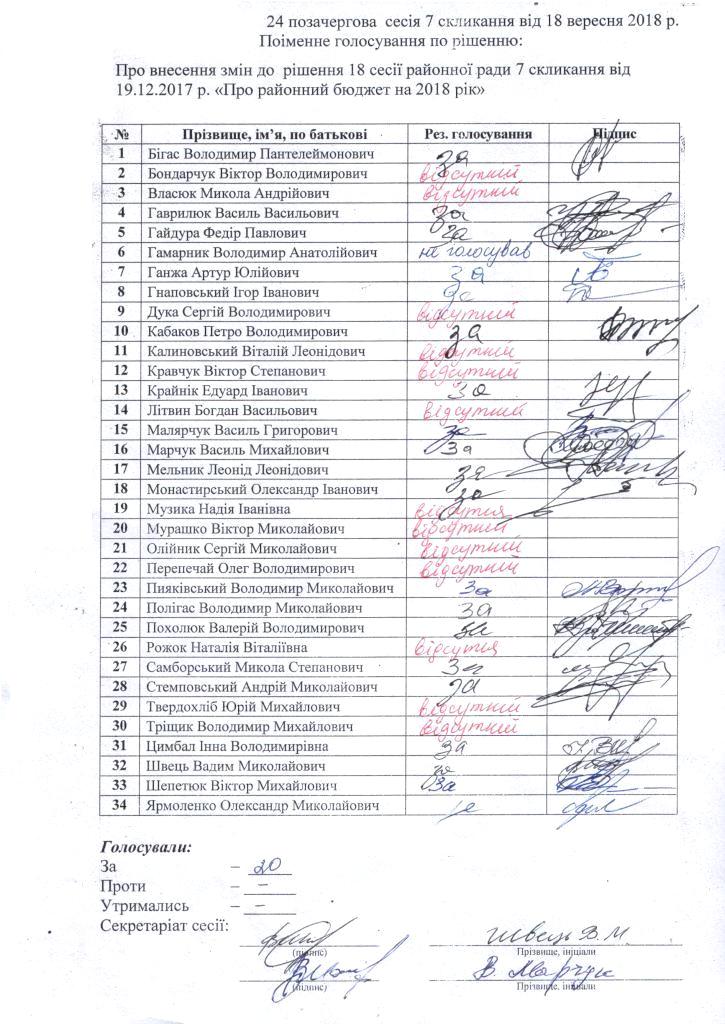 24 позачергова сесія 7 скликання від 18 вересня 2018 р.
Поіменне голосування по рішенню:
Про внесення змін до рішення 18 сесії районної ради 7 скликання від
19.12.2017 р. «Про районний бюджет на 2018 рік»
№ Прізвище, ім’я, по батькові Рез. голосування Підпис
1 Бігас Володимир Пантелеймонович за
2 Бондарчук Віктор Володимирович відсутній
3 Власюк Микола Андрійович відсутній
4 Гаврилюк Василь Васильович за
5 Гайдура Федір Павлович за
6 Гамарник Володимир Анатолійович не голосував
7 Ганжа Артур Юлійович за
8 Гнаповський Ігор Іванович за
9 Дука Сергій Володимирович відсутній
10 Кабаков Петро Володимирович за
11 Калиновський Віталій Леонідович відсутній
12 Кравчук Віктор Степанович відсутній
13 Крайнік Едуард Іванович за
14 Літвин Богдан Васильович відсутній
15 Малярчук Василь Григорович за
16 Марчук Василь Михайлович за
17 Мельник Леонід Леонідович за
18 Монастирський Олександр Іванович за
19 Музика Надія Іванівна відсутня
20 Мурашко Віктор Миколайович відсутній
21 Олійник Сергій Миколайович відсутній
22 Перепечай Олег Володимирович відсутній
23 Пияківський Володимир Миколайович за
24 Полігас Володимир Миколайович за
25 Похолюк Валерій Володимирович за
26 Рожок Наталія Віталіївна відсутня
27 Самборський Микола Степанович за
28 Стемповський Андрій Миколайович за
29 Твердохліб Юрій Михайлович відсутній
30 Тріщик Володимир Михайлович відсутній
31 Цимбал Інна Володимирівна за
32 Швець Вадим Миколайович за
33 Шепетюк Віктор Михайлович за
34 Ярмоленко Олександр Миколайович за
Голосували:
За – 20
Проти – –
Утримались – –
Секретаріат сесії:
Швець В.М
(підпис) Прізвище, ініціали
В. Марчук
(підпис) Прізвище, ініціали